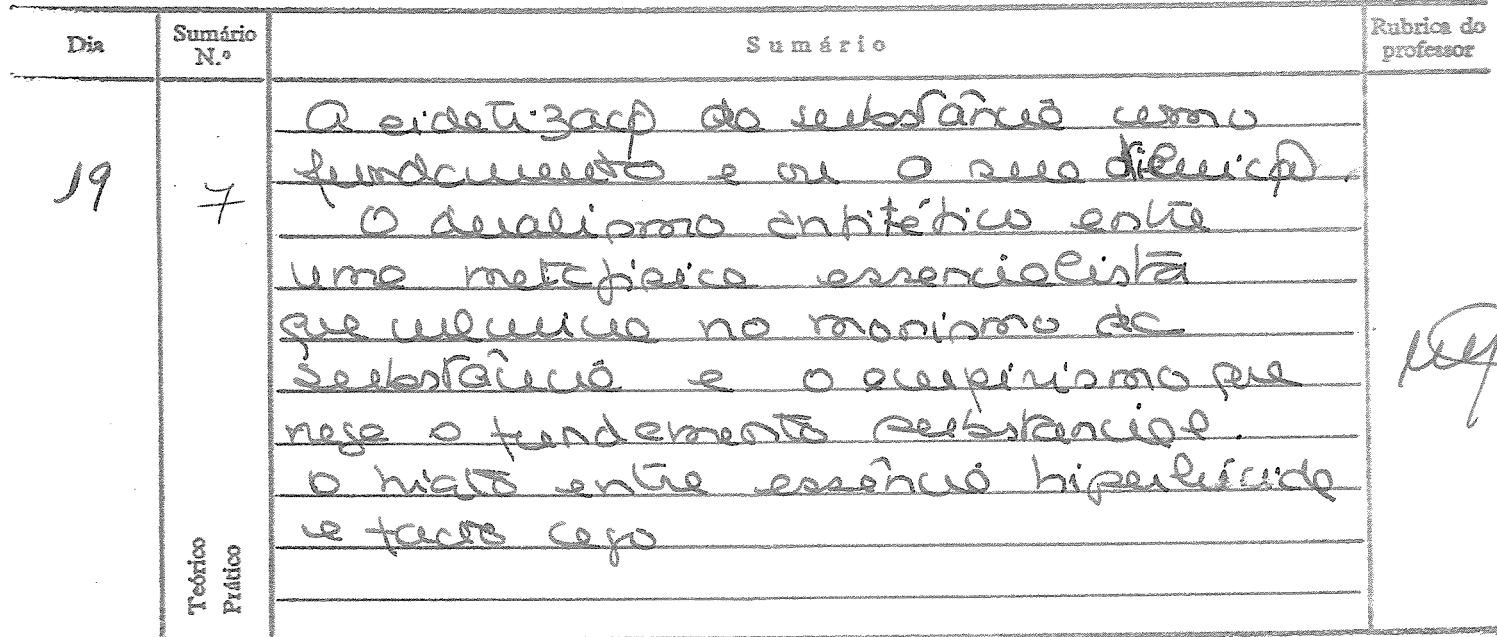 Dia
Sumário N.º
Sumário
Rubrica do professor
19
7
A eidetização da substância como
fundamento e ou a sua diluição.
O dualismo antitético entre
uma metafísica essencialista
que culmina no monismo da
substância e o empirismo que
nega o fundamento substancial.
O hiato entre essência hiperlúcida
e facto cego
Teórico
Prático